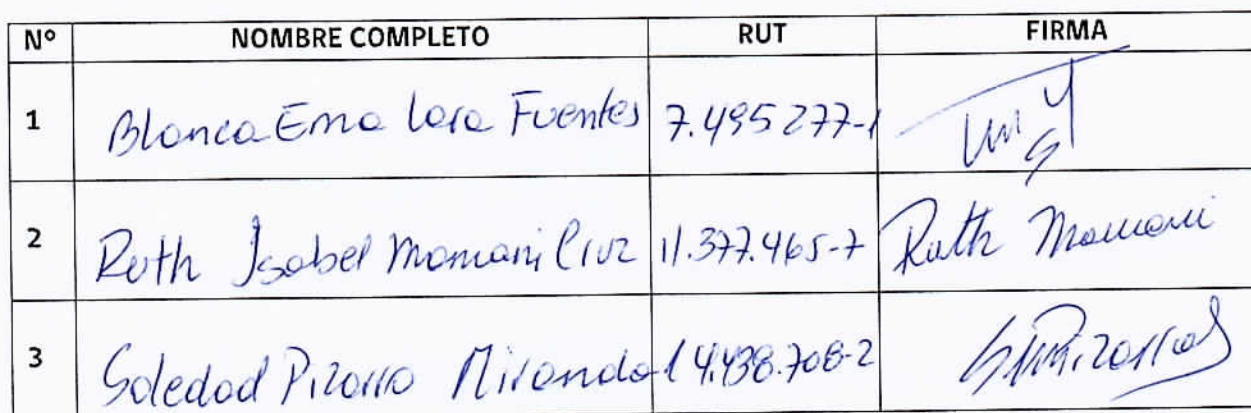 Nº NOMBRE COMPLETO RUT FIRMA
1 Blanca Ema Lara Fuentes 7.495277-1
2 Ruth Isabel Mamani Cruz 11.377.465-7 Ruth Mamani
3 Soledad Pizarro Miranda 14.438.708-2